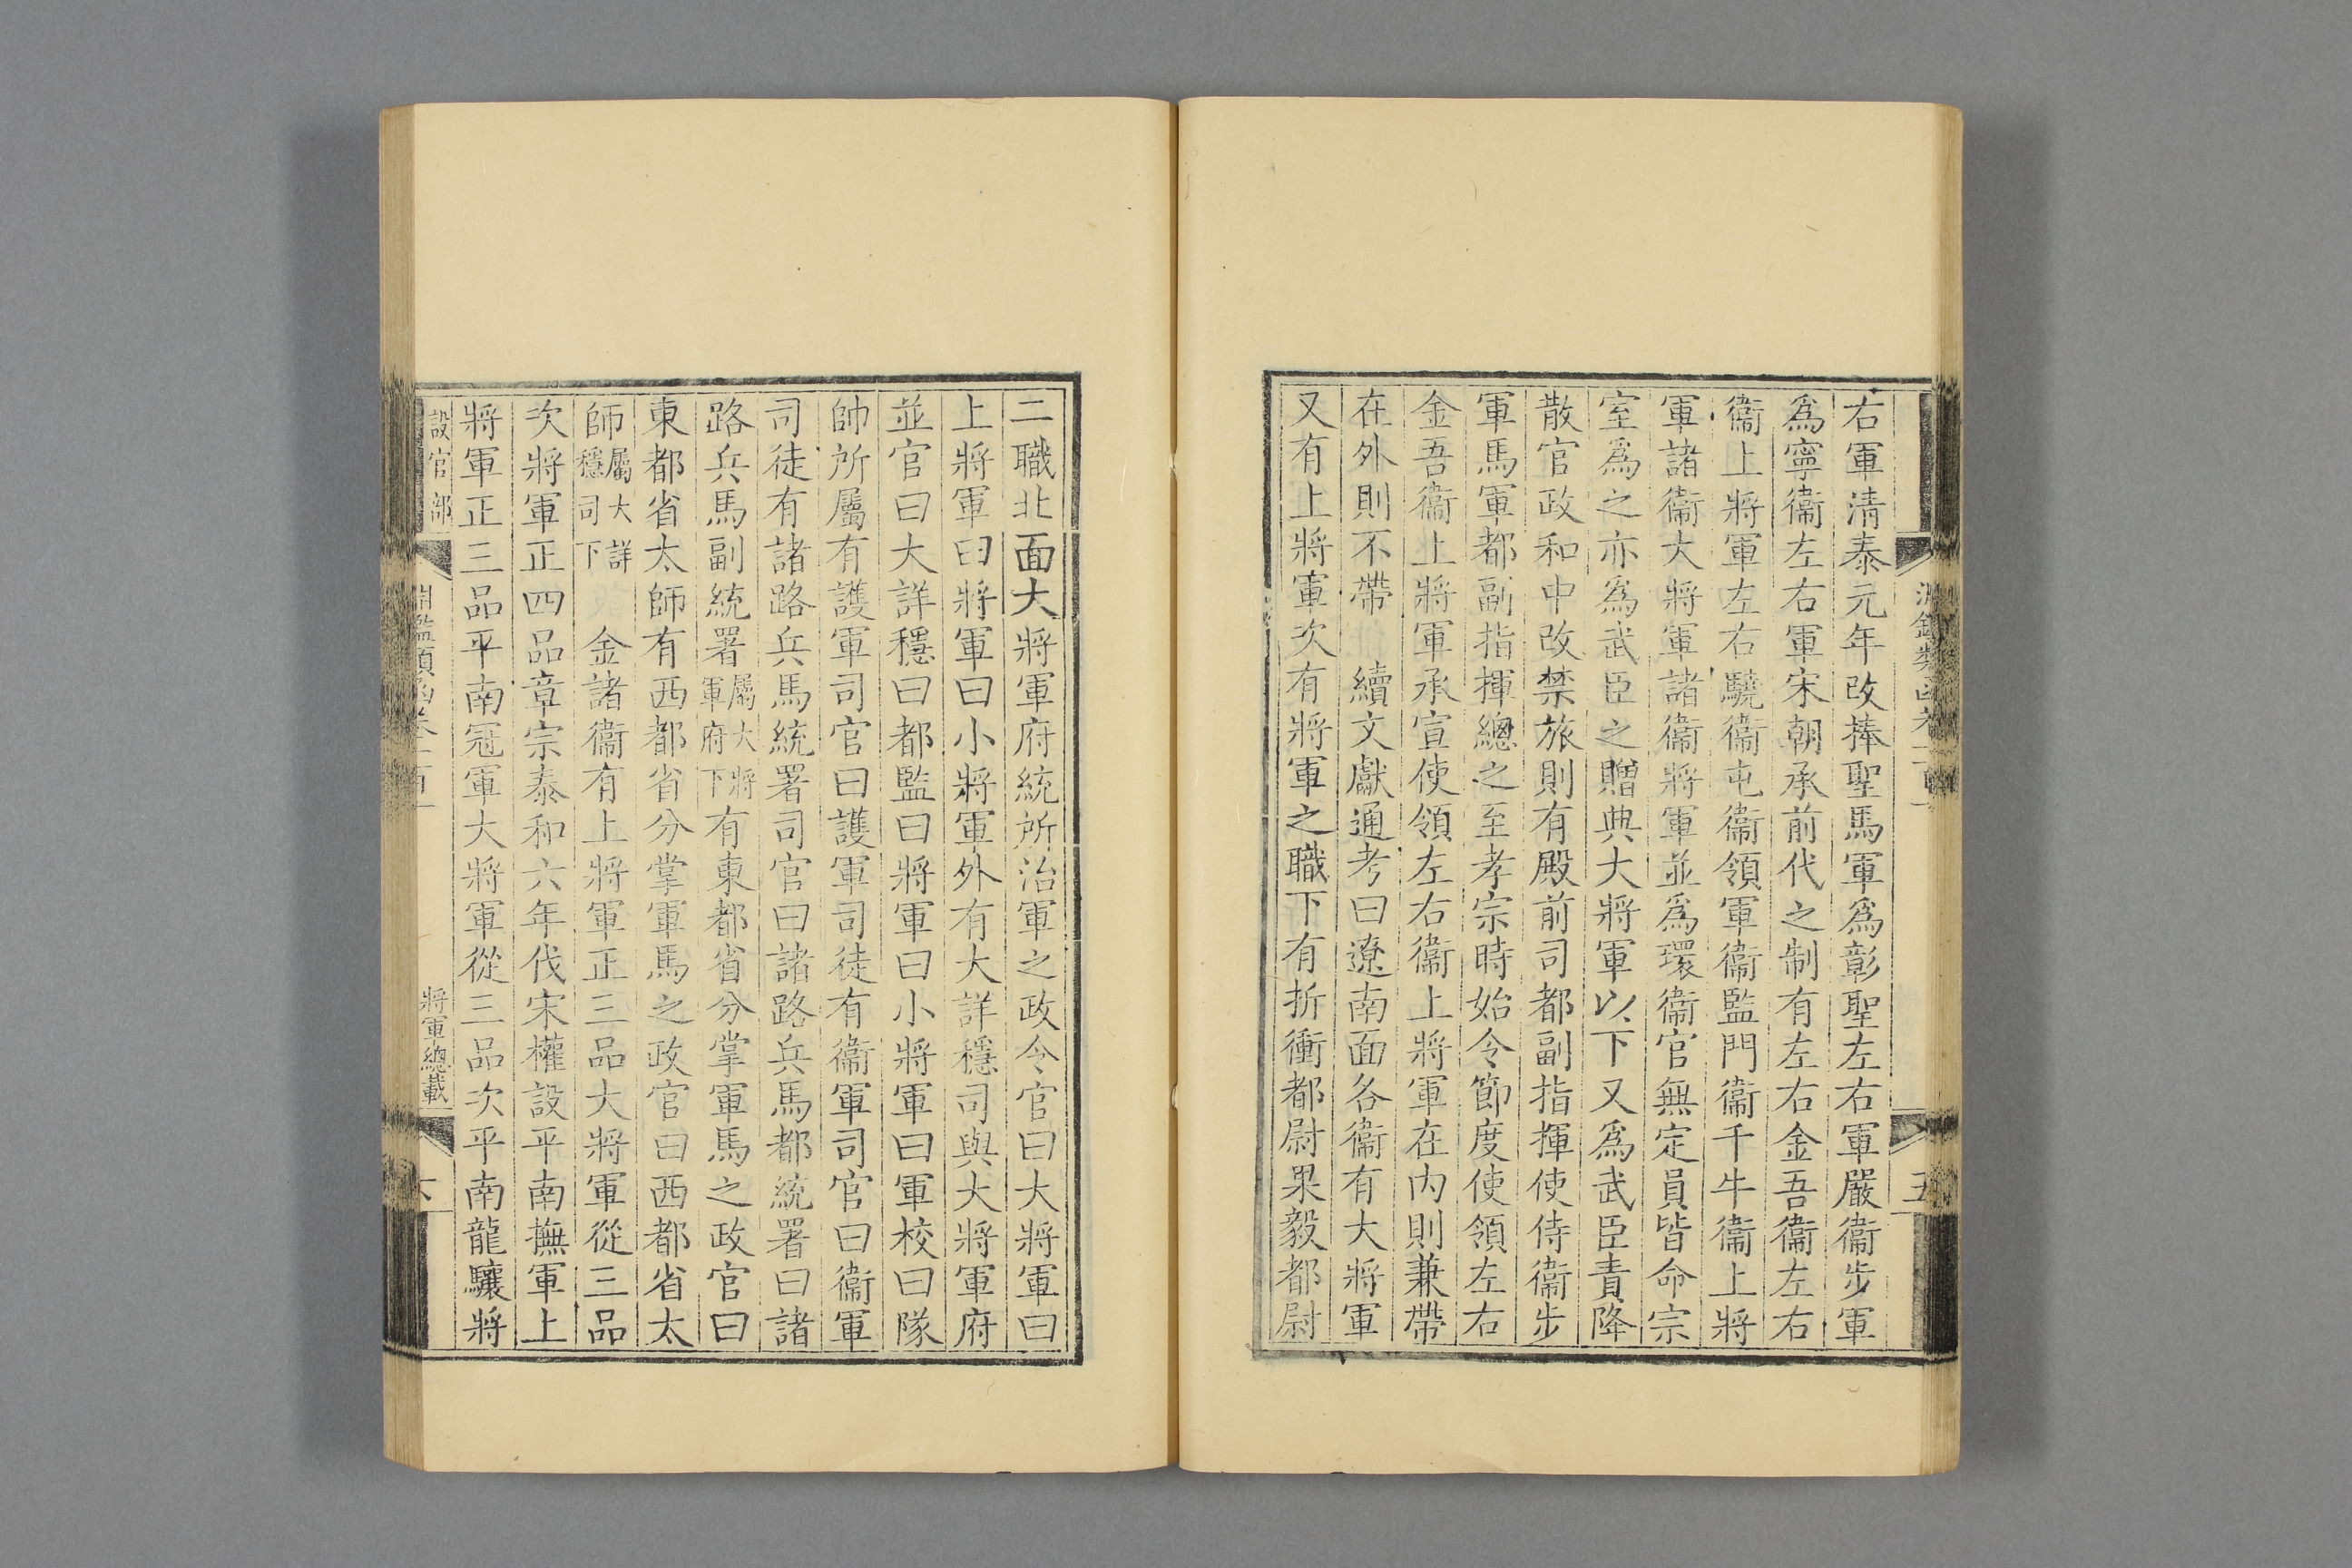 右軍清泰元年改捧聖馬軍爲彰聖左右軍嚴衞步軍
爲寧衞左右軍宋朝承前代之制有左右金吾衞左右
衞上將軍左右驍衞屯衞領軍衞監門衞千牛衞上將
軍諸衞大將軍諸衞將軍並爲環衞官無定員皆命宗
室爲之亦爲武臣之贈典大將軍以下又爲武臣責降
散官政和中改禁旅則有殿前司都副指揮使侍衞步
軍馬軍都副指揮總之至孝宗時始令節度使領左右
金吾衞上將軍承宣使領左右衞上將軍在內則兼帶
在外則不帶 續文獻通考曰遼南面各衞有大將軍
又有上將軍次有將軍之職下有折衝都尉果毅都尉
二職北面大將軍府統所治軍之政令官曰大將軍曰
上將軍曰將軍曰小將軍外有大詳穩司與大將軍府
並官曰大詳穩曰都監曰將軍曰小將軍曰軍校曰隊
帥所屬有護軍司官曰護軍司徒有衞軍司官曰衞軍
司徒有諸路兵馬統署司官曰諸路兵馬都統署曰諸
路兵馬副統署屬大將軍府下有東都省分掌軍馬之政官曰
東都省太師有西都省分掌軍馬之政官曰西都省太
師屬大詳穩司下 金諸衞有上將軍正三品大將軍從三品
次將軍正四品章宗泰和六年伐宋權設平南撫軍上
將軍正三品平南冠軍大將軍從三品次平南龍驤將
設官部
鑑類函卷一百一
將軍總載